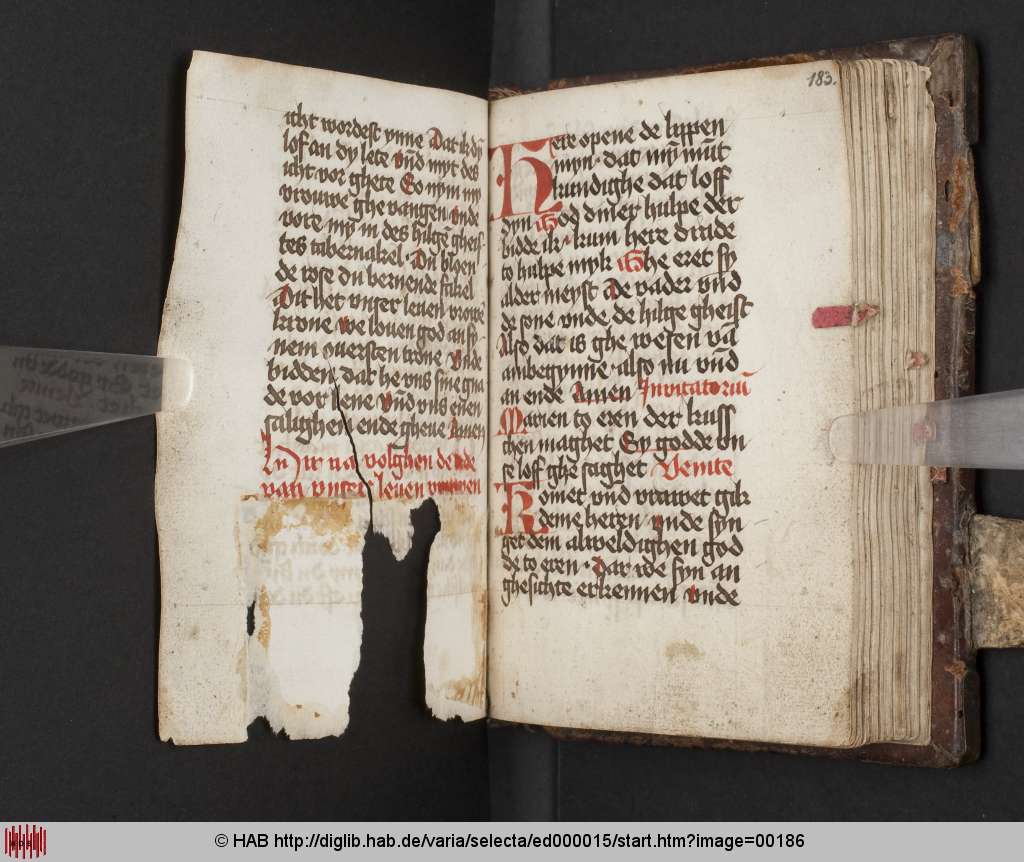 icht wordest ynne Dat ik dy
lof an dy lete vnd myt des
icht vor ghete So nym my
vrouwe ghe vangen vnde
vore my in des hilgen gheis
tes tabernakel Du bloen
de rose du bernende fackel
Dit het vnser leuen vrowe
krone We louen god an sy
nem ouersten trone Vnde
bidden dat he vns sine gna
de vor lene vnd vns enen
salighen ende gheue Amen
Hir na volghen de tide
van vnser leuen vrouwen
183.
Here opene de lyppen
myn · dat my mūt
kundighe dat loff
dyn God diner hulpe der
bidde ik · kum here drade
to hulpe myk Ghe eret sy
alder meyst de vader vnd
de sone vnde de hilge gheist
Also dat is ghe wesen vā
anbegynne · also nu vnd
an ende Amen Inuitatoriū
Marien to eren der kuss
chen maghet Sy godde vn
se loff ghe saghet Venite
Komet vnd vrauwet gik
deme heren · vnde syn
get dem alweldighen god
de to eren · Dat we syn an
ghesichte erkennen vnde
© HAB http://diglib.hab.de/varia/selecta/ed000015/start.htm?image=00186